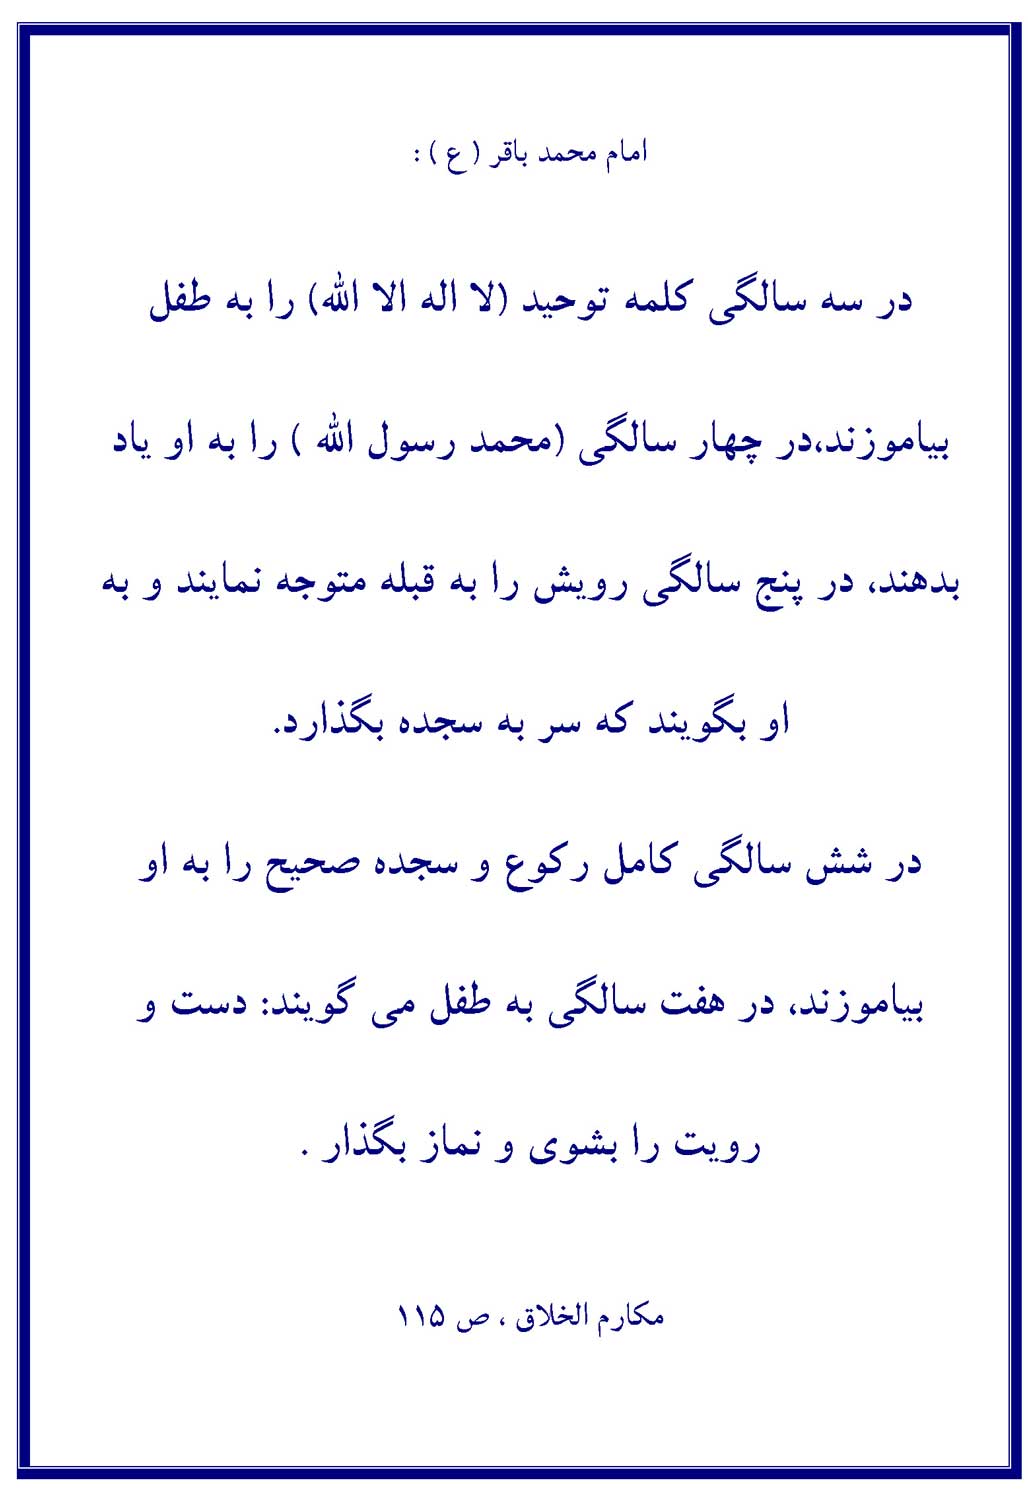 امام محمد باقر ( ع ) :
در سه سالگی کلمه توحید (لا اله الا الله) را به طفل
بیاموزند،در چهار سالگی (محمد رسول الله ) را به او یاد
بدهند، در پنج سالگی رویش را به قبله متوجه نمایند و به
او بگویند که سر به سجده بگذارد.
در شش سالگی کامل رکوع و سجده صحیح را به او
بیاموزند، در هفت سالگی به طفل می گویند: دست و
رویت را بشوی و نماز بگذار .
مکارم الخلاق ، ص ۱۱۵